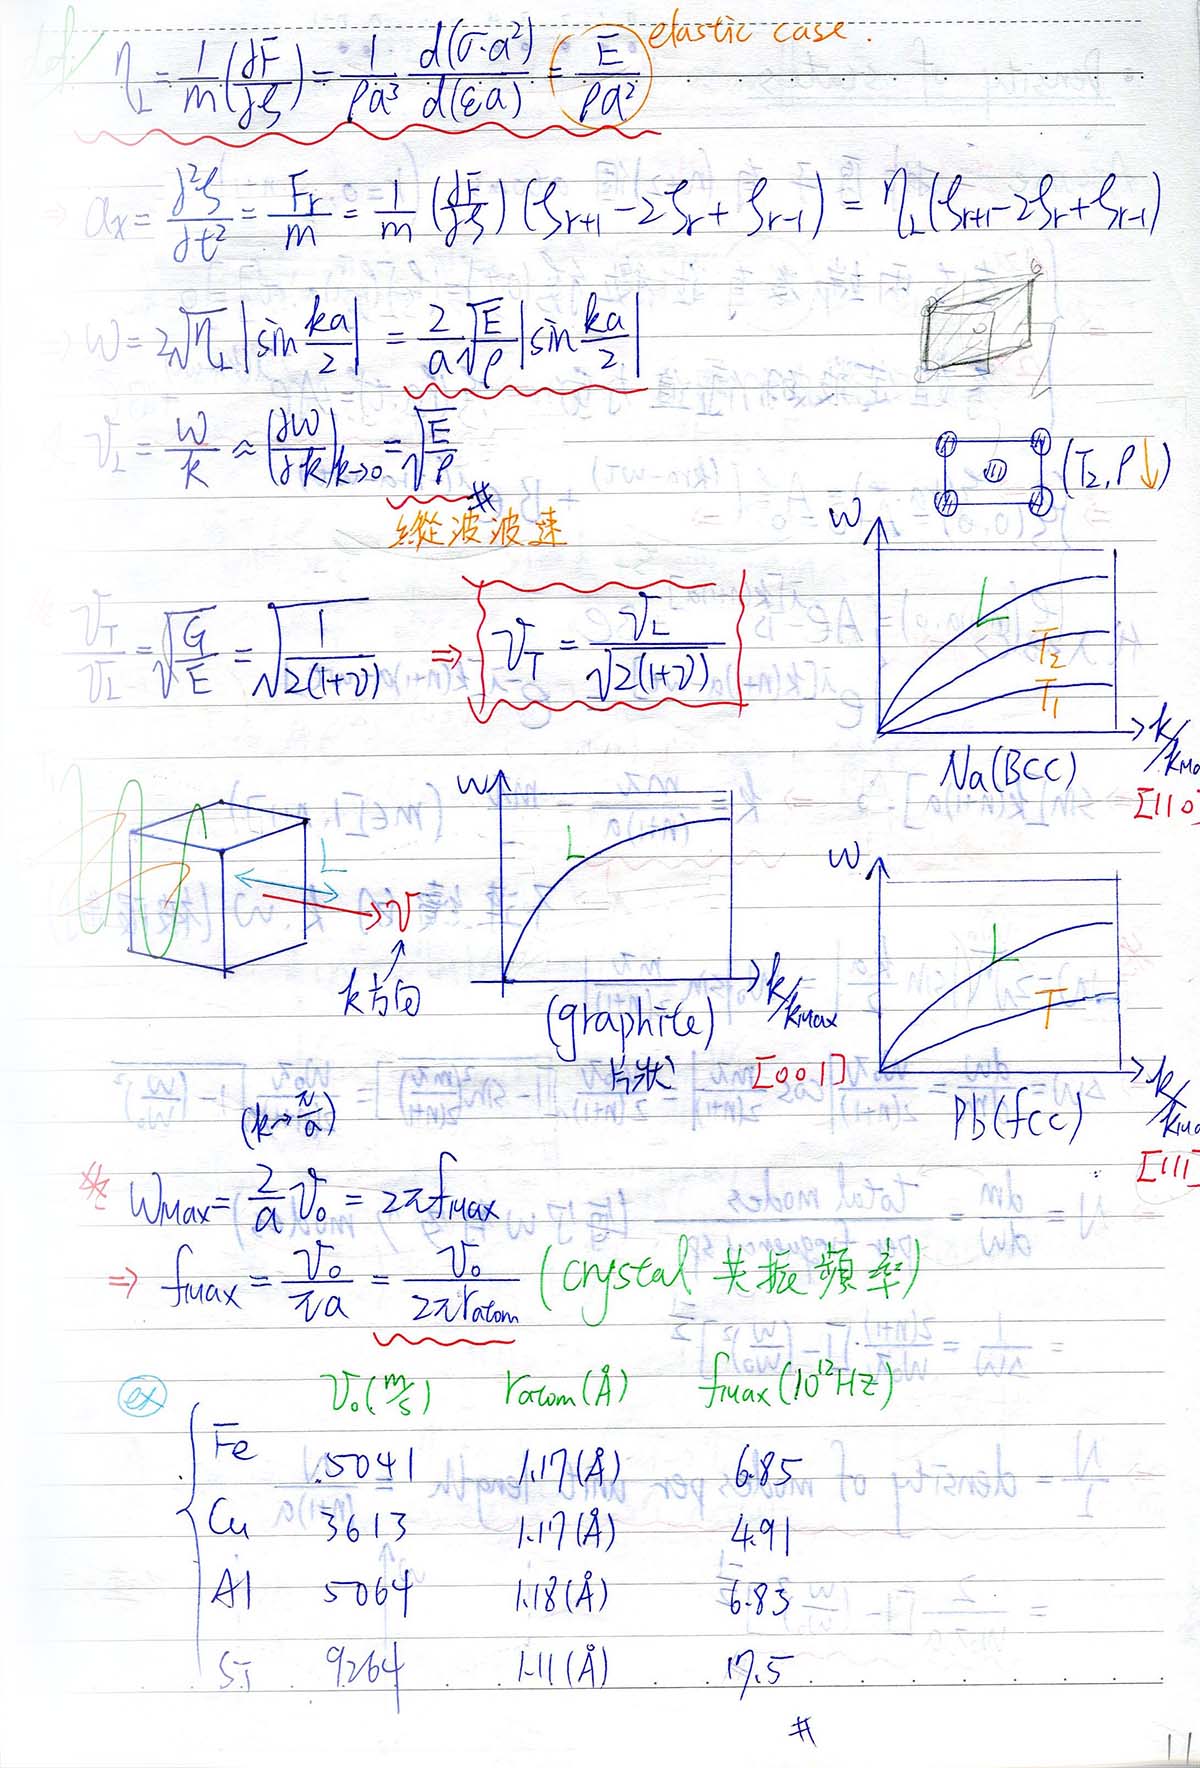 η⊥ = 1/m (∂F/∂ξ) = 1/ρa³ d(σ·a²)/d(εa) = E/ρa² elastic case.
αx = ∂²ξ/∂t² = Fr/m = 1/m (∂F/∂ξ)(ξr+1 - 2ξr + ξr-1) = η⊥(ξr+1 - 2ξr + ξr-1)
ω = 2√η⊥ |sin ka/2| = 2/a √E/ρ |sin ka/2|
v⊥ = ω/k ≈ (∂ω/∂k)k→0 = √E/ρ #
縱波波速
(T2, ρ↓)
vT/vL = √G/E = √1/2(1+ν) ⇒ vT = vL/√2(1+ν)
ω
L
T2
T1
k/kMa
Na(BCC)
[110]
L
v
k方向
ω
L
k/kMax
(graphite)
片狀
[001]
ω
L
T
k/kMa
Pb(fcc)
[111]
(k→π/a)
ωMax = 2/a v0 = 2πfMax
⇒ fMax = v0/πa = v0/2πratom (crystal 共振頻率)
ex v0(m/s) ratom(Å) fMax(10¹²Hz)
Fe 5041 1.17(Å) 6.85
Cu 3613 1.17(Å) 4.91
Al 5064 1.18(Å) 6.83
Si 9264 1.11(Å) 17.5
#
11